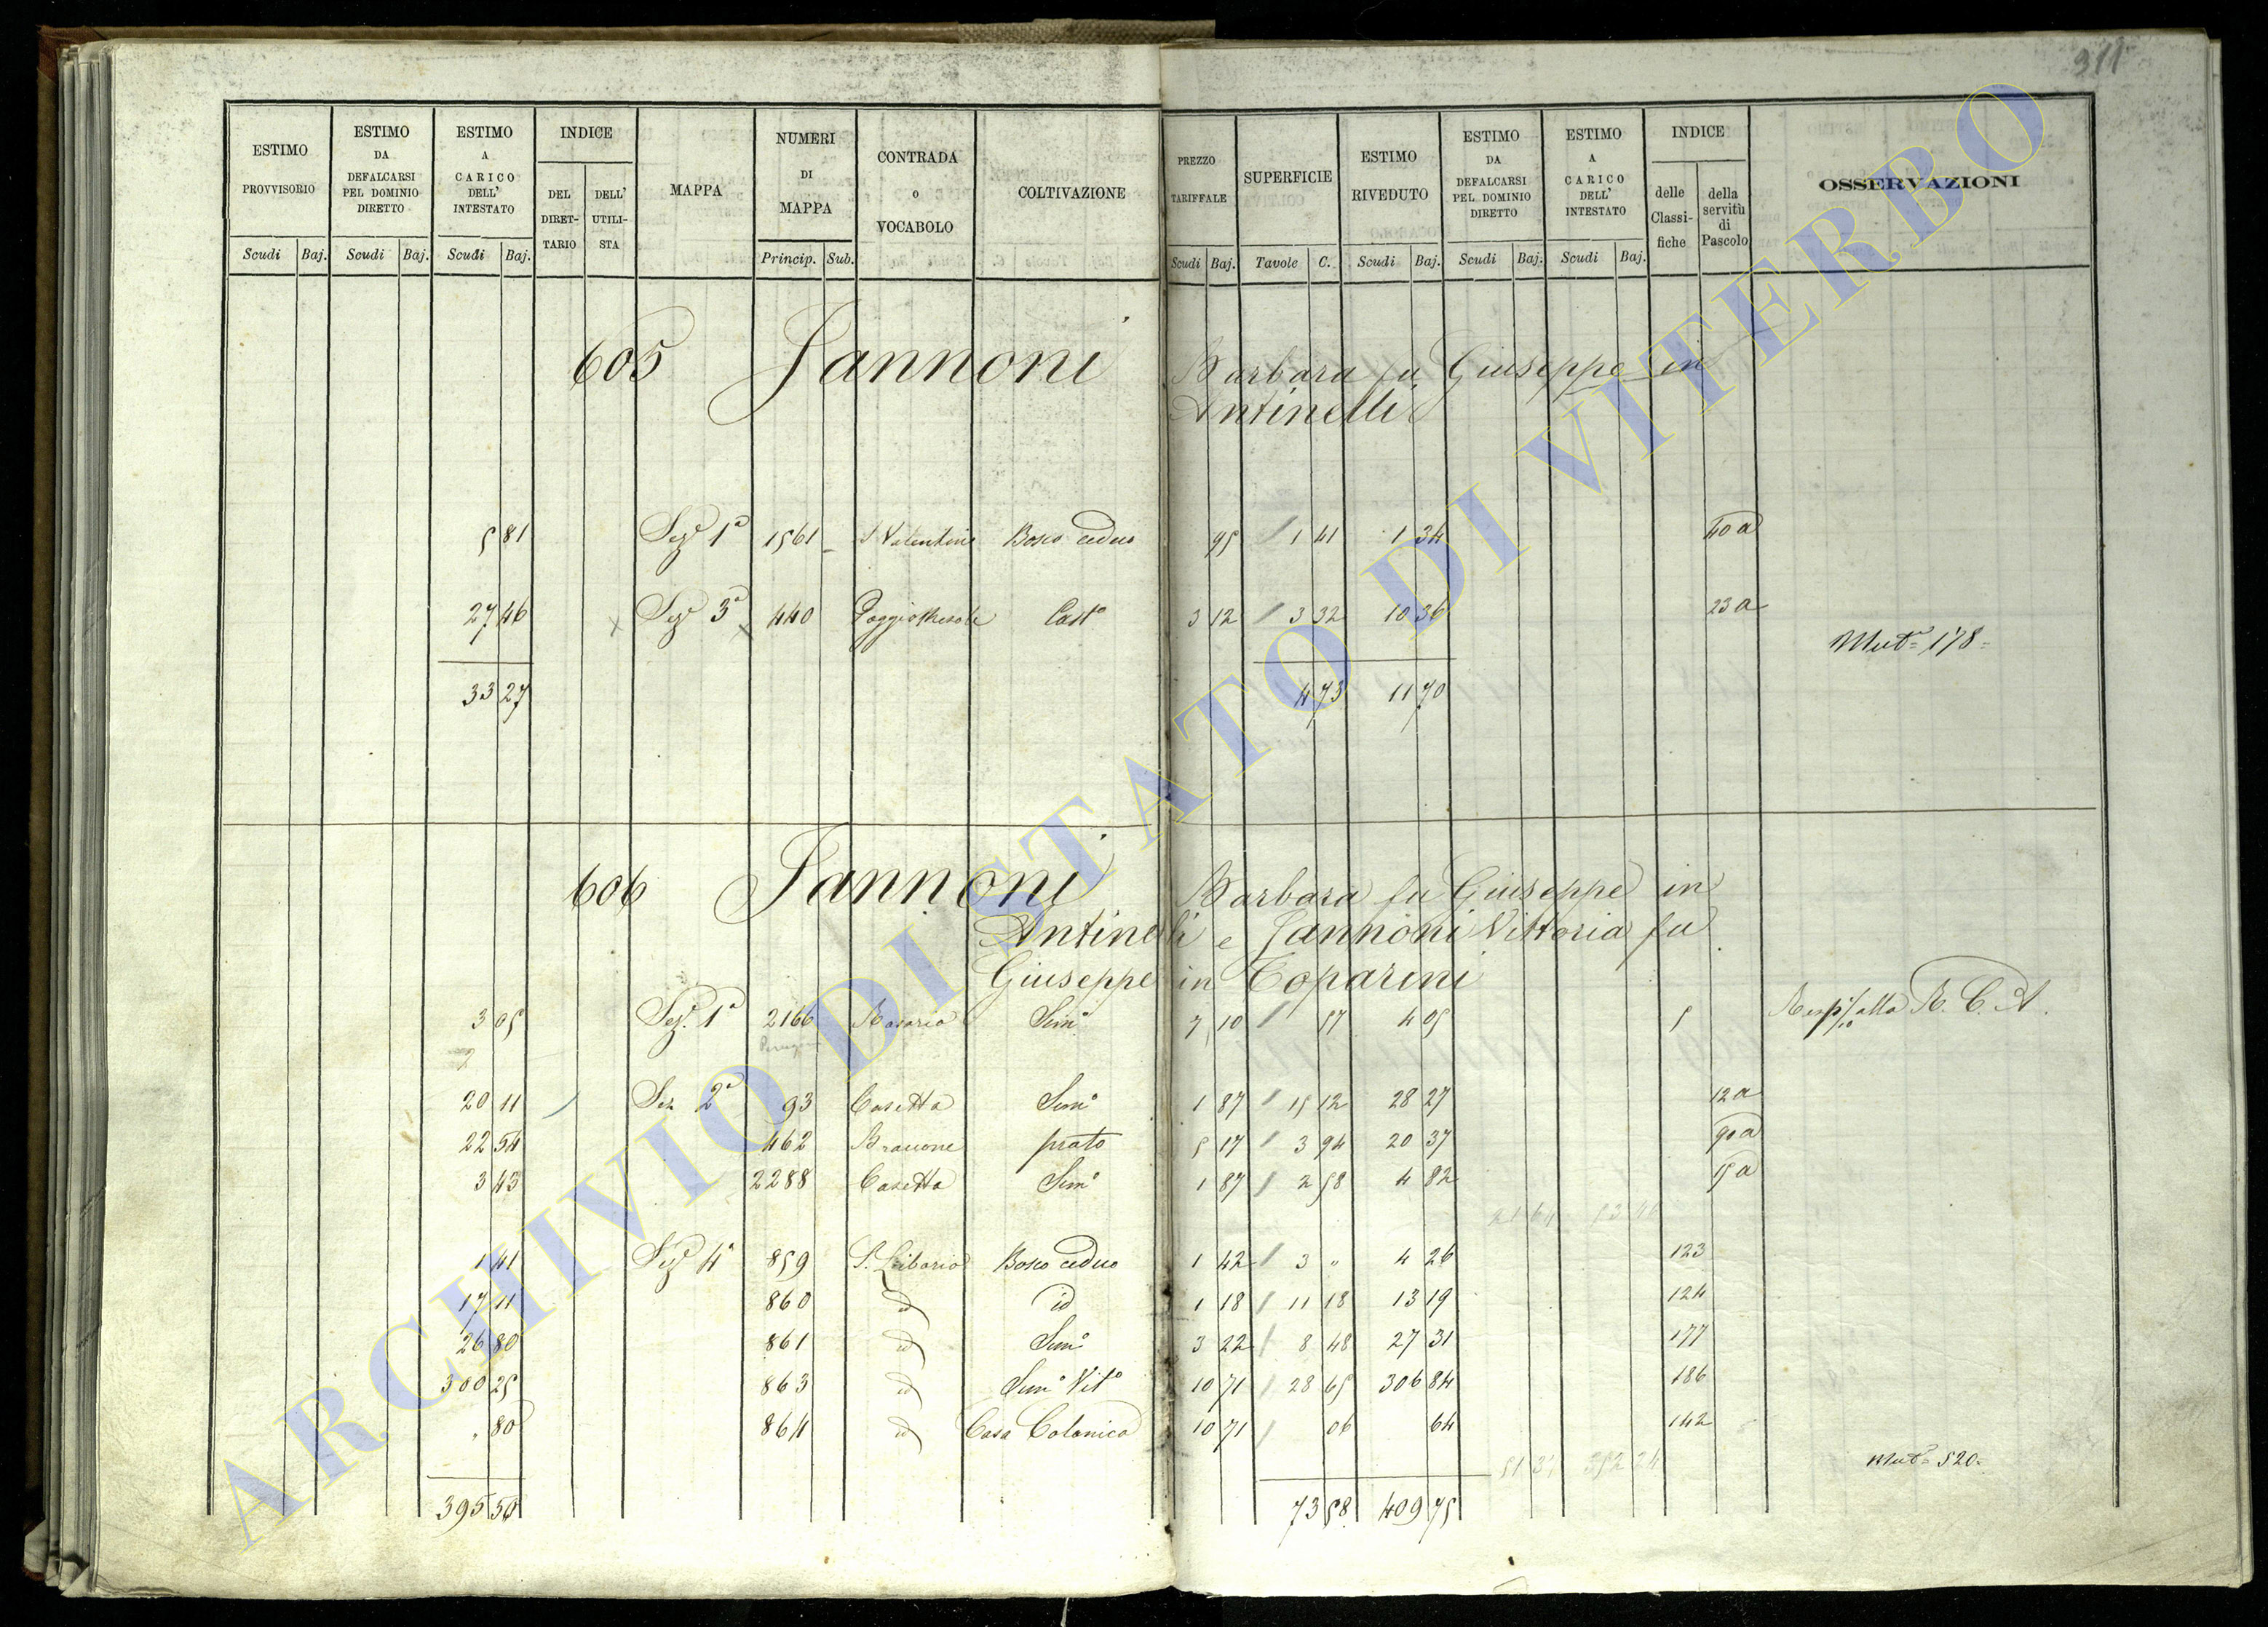 311
ESTIMO PROVVISORIO
ESTIMO DA DEFALCARSI PEL DOMINIO DIRETTO
ESTIMO A CARICO DELL' INTESTATO
INDICE
DEL DIRET-TARIO
DELL' UTILI-STA
MAPPA
NUMERI DI MAPPA
CONTRADA o VOCABOLO
COLTIVAZIONE
PREZZO TARIFFALE
SUPERFICIE
ESTIMO RIVEDUTO
ESTIMO DA DEFALCARSI PEL DOMINIO DIRETTO
ESTIMO A CARICO DELL' INTESTATO
INDICE
delle Classi-fiche
della servitù di Pascolo
OSSERVAZIONI
Scudi Baj. Scudi Baj. Scudi Baj. Princip. Sub. Scudi Baj. Tavole C. Scudi Baj. Scudi Baj. Scudi Baj.
605 Jannoni Barbara fu Giuseppe in
Antinelli
5 81 Sez. 1ª 1561 S Valentino Bosco ceduo 95 1 41 1 34 40 a
27 46 Sez. 3ª 440 Cast° 3 12 3 32 10 36 23 a
Mut= 178=
33 27 4 73 11 70
606 Jannoni Barbara fu Giuseppe in
Antinelli e Jannoni Vittoria fu
Giuseppe in Coparini
3 05 Sez. 1ª 2166 Rosario Sem° 7 10 57 4 05 5 alla R. C. A.
20 11 Sez 2ª 93 Casetta Sem° 1 87 15 12 28 27 12 a
22 54 462 prato 5 17 3 94 20 37 90 a
3 43 2288 Casetta Sem° 1 87 2 58 4 82 15 a
1 41 Sez. 4ª 859 S. Liborio Bosco ceduo 1 42 3 " 4 26 123
17 11 860 id id 1 18 11 18 13 19 124
26 80 861 id Sem° 3 22 8 48 27 31 177
300 25 863 id Sem° Vit° 10 71 28 65 306 84 186
" 80 864 id Casa Colonica 10 71 06 64 142
Mut= 520=
395 50 73 58 409 75
ARCHIVIO DI STATO DI VITERBO